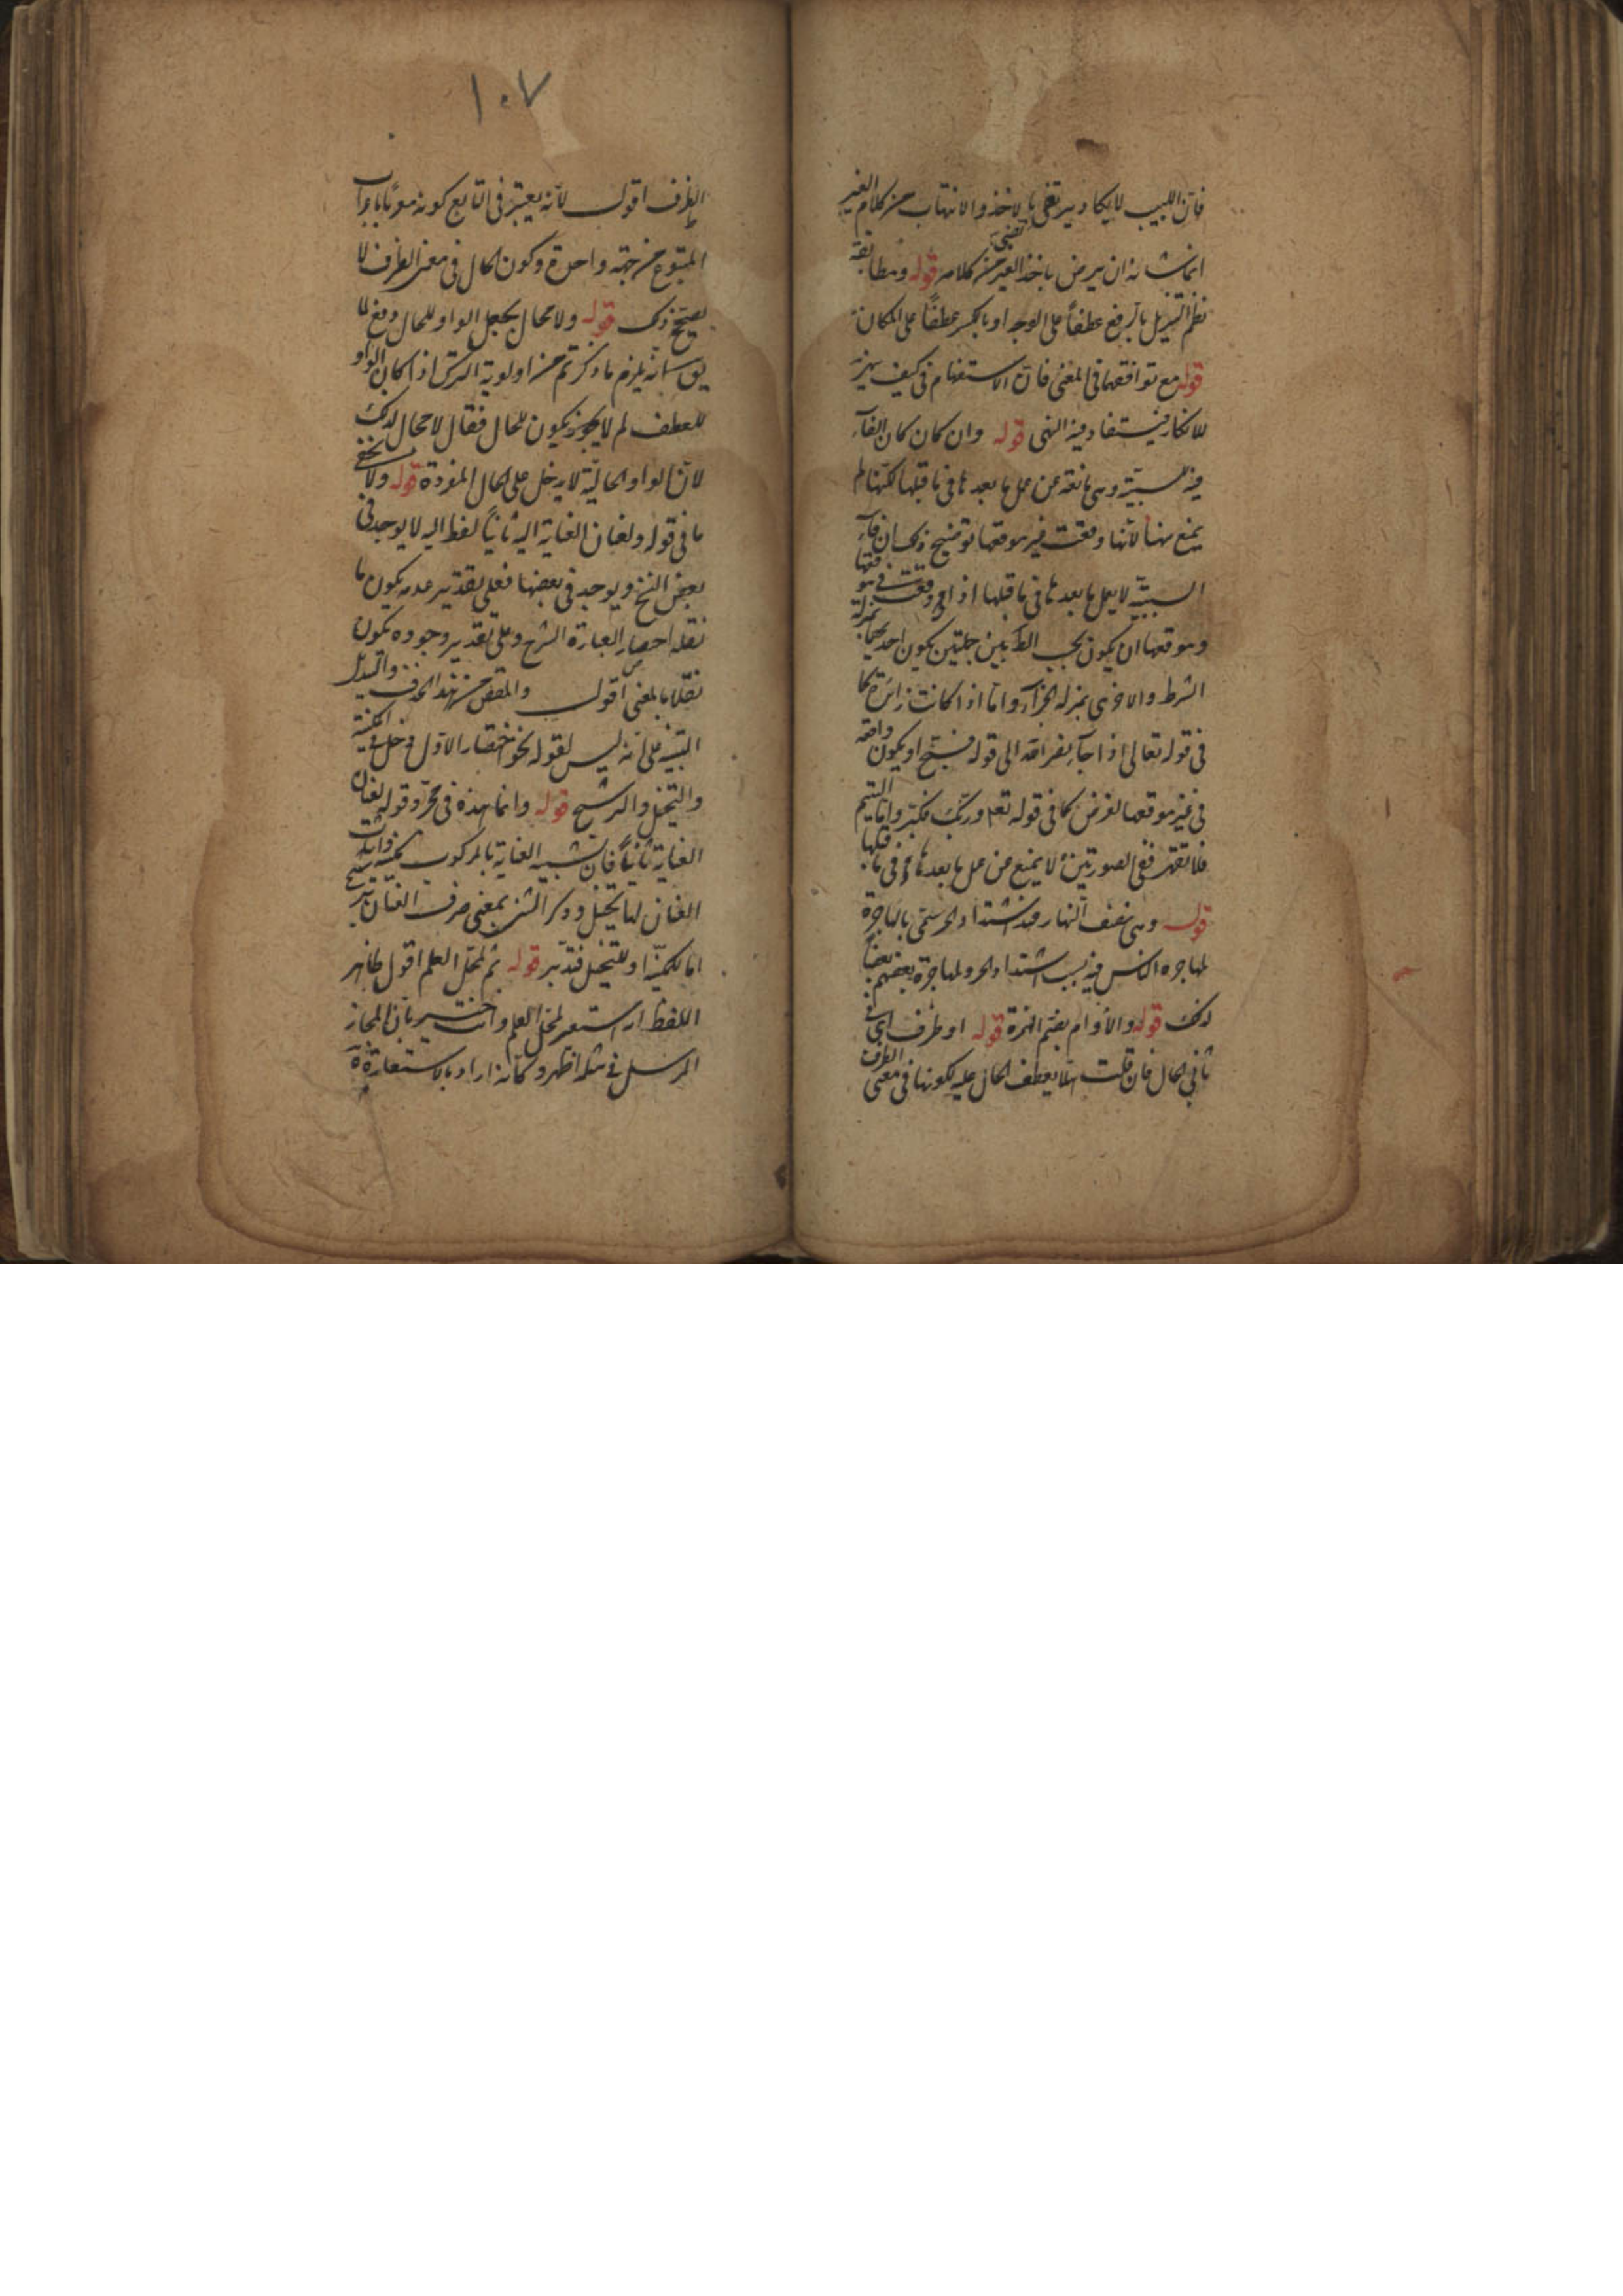 فان اللبيب لا يكاد يرتضى بالاخذ والانتهاب من كلام الغير
انما شانه ان يرضى باخذ الغير من كلامه قوله ومطابقة
نظم التنزيل بالرفع عطفاً على الوجه او بالكسر عطفاً على المكان
قوله مع توافقهما فى المعنى فان الاستفهام فى كيف
للانكار فيستفاد منه النهى قوله وان كان كان الفاء
فيه سببية وهى مانعة عن عمل ما بعدها فى ما قبلها لكنها لم
يمنع منها لانها وقعت غير موقعها توضيح ذلك ان فاء
السببية لا يعمل ما بعدها فى ما قبلها اذا وقعت فى موقعها
وموقعها ان يكون بحسب الظ بين جملتين يكون احديهما بمنزلة
الشرط والاخرى بمنزلة الجزاء واما اذا كانت زائدة كما
فى قوله تعالى اذا جاء نصر الله الى قوله فسبح او يكون واقعة
فى غير موقعها لغرض كما فى قوله تعم وربك فكبر واما اليتيم
فلا تقهر ففى الصورتين لا يمنع من عمل ما بعدها فى ما قبلها
قوله وهى نصف النهار عند اشتداد الحر سمى بالهاجرة
لمهاجرة الناس فيه بسبب اشتداد الحر ولمهاجرة بعضهم بعضا
لذلك قوله والاوام بضم الهمزة قوله او ظرف اى فى
ثانى الحال فان قلت هلا يعطف الحال عليه لكونها فى معنى الظرف
١٠٧
الظرف اقول لانه يعتبر فى التابع كونه معربا باعراب
المتبوع من جهة واحدة وكون الحال فى معنى الظرف لا
يصحح ذلك قوله ولا مجال لجعل الواو للحال دفع لما
يق انه يلزم ما ذكرتم من اولوية الترك اذا كان الواو
للعطف لم لا يجوز يكون للحال فقال لا مجال لذلك
لان الواو الحالية لا يدخل على الحال المفردة قوله ولا يخفى
ما فى قوله ولعنان العناية اليه ثانياً لفظ اليه لا يوجد فى
بعض النسخ ويوجد فى بعضها فعلى تقدير عدمه يكون ما
نقله اختصار العبارة الشرح وعلى تقدير وجوده يكون
نقلا بالمعنى اقول والمقص من هذا الحذف والتبديل
التنبيه على انه ليس لقوله نحو اختصار الاول دخل فى المكنية
والتخييل والترشيح قوله وانما هذه فى مجرد قوله لعنان
العناية ثانياً فان تشبيه العناية بالمركوب مكنية واثبات
العنان لها تخييل وذكر الثنى بمعنى صرف العنان ترشيح
اما للمكنية او للتخييل فتدبر قوله ثم لمحل العلم اقول ظاهر
اللفظ انه استعير لمحل العلم وانت خبير بان المجاز
المرسل فى مثله اظهر وكانه اراد بالاستعارة